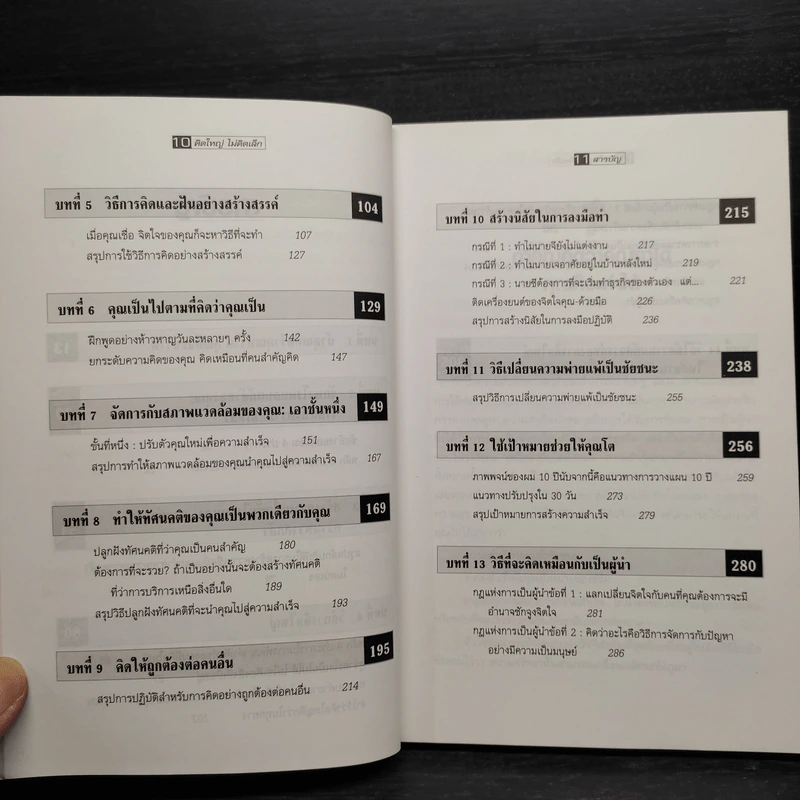 10 คิดใหญ่ ไม่คิดเล็ก
บทที่ 5 วิธีการคิดและฝันอย่างสร้างสรรค์ 104
เมื่อคุณเชื่อ จิตใจของคุณก็จะหาวิธีที่จะทำ 107
สรุปการใช้วิธีการคิดอย่างสร้างสรรค์ 127
บทที่ 6 คุณเป็นไปตามที่คิดว่าคุณเป็น 129
ฝึกพูดอย่างห้าวหาญวันละหลายๆ ครั้ง 142
ยกระดับความคิดของคุณ คิดเหมือนที่คนสำคัญคิด 147
บทที่ 7 จัดการกับสภาพแวดล้อมของคุณ: เอาชั้นหนึ่ง 149
ชั้นที่หนึ่ง : ปรับตัวคุณใหม่เพื่อความสำเร็จ 151
สรุปการทำให้สภาพแวดล้อมของคุณนำคุณไปสู่ความสำเร็จ 167
บทที่ 8 ทำให้ทัศนคติของคุณเป็นพวกเดียวกับคุณ 169
ปลูกฝังทัศนคติที่ว่าคุณเป็นคนสำคัญ 180
ต้องการที่จะรวย? ถ้าเป็นอย่างนั้นจะต้องสร้างทัศนคติ
ที่ว่าการบริการเหนือสิ่งอื่นใด 189
สรุปวิธีปลูกฝังทัศนคติที่จะนำคุณไปสู่ความสำเร็จ 193
บทที่ 9 คิดให้ถูกต้องต่อคนอื่น 195
สรุปการปฏิบัติสำหรับการคิดอย่างถูกต้องต่อคนอื่น 214
11 สารบัญ
บทที่ 10 สร้างนิสัยในการลงมือทำ 215
กรณีที่ 1 : ทำไมนายจียังไม่แต่งงาน 217
กรณีที่ 2 : ทำไมนายเจอาศัยอยู่ในบ้านหลังใหม่ 219
กรณีที่ 3 : นายซีต้องการที่จะเริ่มทำธุรกิจของตัวเอง แต่... 221
ติดเครื่องยนต์ของจิตใจคุณ-ด้วยมือ 226
สรุปการสร้างนิสัยในการลงมือปฏิบัติ 236
บทที่ 11 วิธีเปลี่ยนความพ่ายแพ้เป็นชัยชนะ 238
สรุปวิธีการเปลี่ยนความพ่ายแพ้เป็นชัยชนะ 255
บทที่ 12 ใช้เป้าหมายช่วยให้คุณโต 256
ภาพพจน์ของผม 10 ปีนับจากนี้คือแนวทางการวางแผน 10 ปี 259
แนวทางปรับปรุงใน 30 วัน 273
สรุปเป้าหมายการสร้างความสำเร็จ 279
บทที่ 13 วิธีที่จะคิดเหมือนกับเป็นผู้นำ 280
กฎแห่งการเป็นผู้นำข้อที่ 1 : แลกเปลี่ยนจิตใจกับคนที่คุณต้องการจะมี
อำนาจชักจูงจิตใจ 281
กฎแห่งการเป็นผู้นำข้อที่ 2 : คิดว่าอะไรคือวิธีการจัดการกับปัญหา
อย่างมีความเป็นมนุษย์ 286